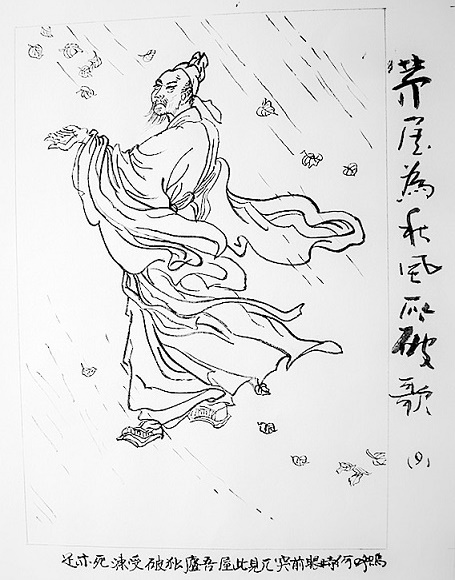 茅屋為秋风所破歌
(9)
嗚呼何時眼前突兀見此屋吾廬独破受凍死亦足